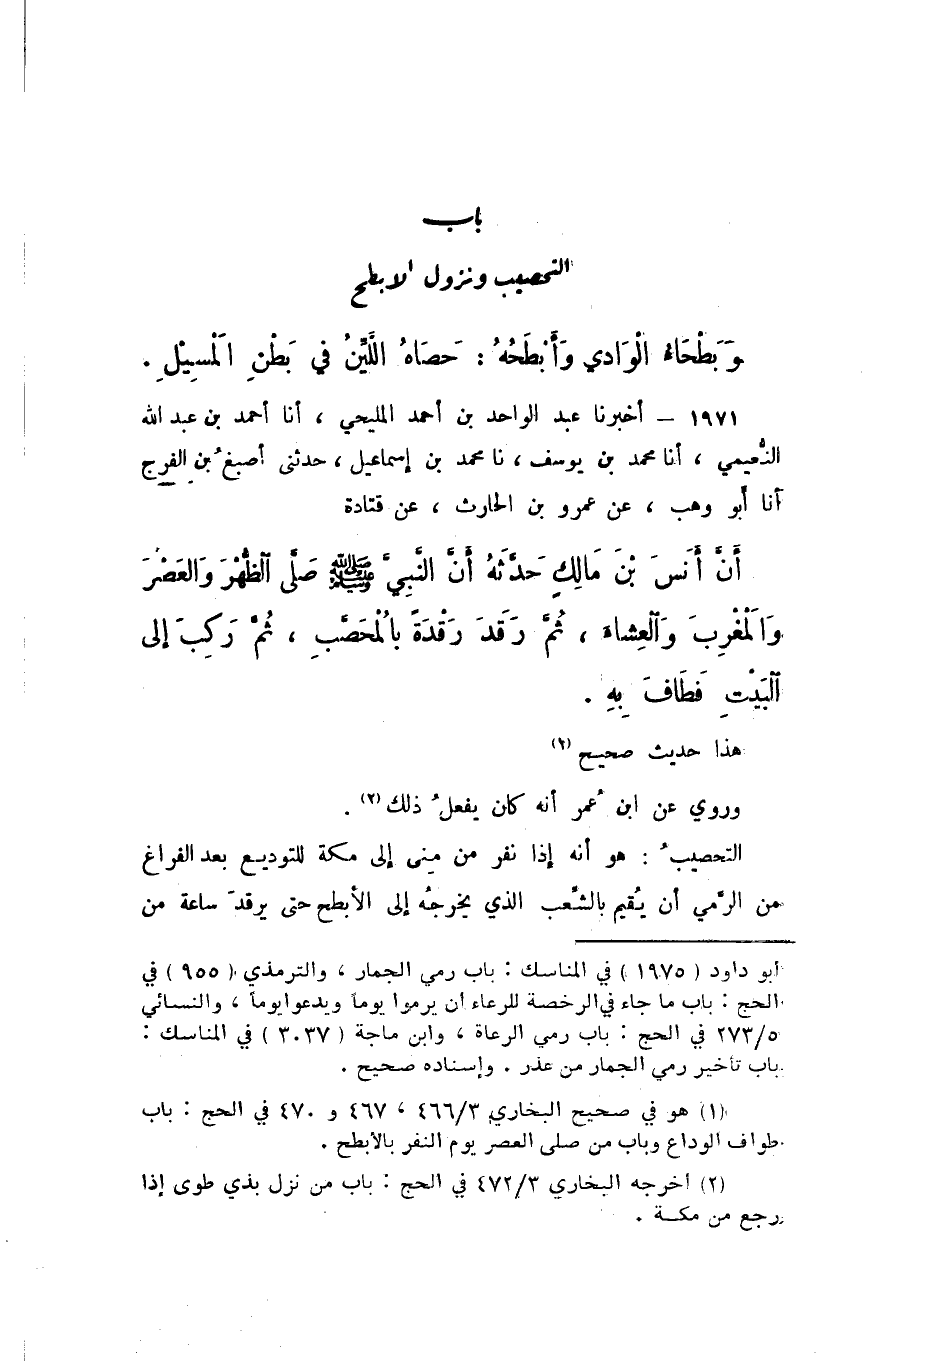 باب
التحصيب ونزول الابطح
وَبَطْحَاءُ الْوَادي وَأَبْطَحُهُ : حَصَاهُ اللَّيِّنُ في بَطْنِ الْمَسِيْلِ .
١٩٧١ – أخبرنا عبد الواحد بن أحمد المليحي ، أنا أحمد بن عبد الله
النُّعيمي ، أنا محمد بن يوسف ، نا محمد بن إسماعيل ، حدثني أصبغُ بن الفرج
أنا أبو وهب ، عن عمرو بن الحارث ، عن قتادة
أَنَّ أَنَسَ بْنَ مَالِكٍ حَدَّثَهُ أَنَّ النَّبِيَّ ﷺ صَلَّى الظُّهْرَ وَالعَصْرَ
وَالْمَغْرِبَ وَالْعِشاءَ ، ثُمَّ رَقَدَ رَقْدَةً بِالْمُحَصَّبِ ، ثُمَّ رَكِبَ إلى
الْبَيْتِ فَطَافَ بِهِ .
هذا حديث صحيح (١)
وروي عن ابن عُمر أنه كان يفعلُ ذلك (٢) .
التحصيبُ : هو أنه إذا نفر من مِنى إلى مكة للتوديع بعد الفراغ
من الرَّمي أن يُقيم بالشَّعب الذي يخرجُه إلى الأبطح حتى يرقدَ ساعة من
أبو داود ( ١٩٧٥ ) في المناسك : باب رمي الجمار ، والترمذي ( ٩٥٥ ) في
الحج : باب ما جاء في الرخصة للرعاء أن يرموا يوماً ويدعوا يوماً ، والنسائي
٢٧٣/٥ في الحج : باب رمي الرعاة ، وابن ماجة ( ٣٠٣٧ ) في المناسك :
باب تأخير رمي الجمار من عذر . وإسناده صحيح .
(١) هو في صحيح البخاري ٤٦٦/٣ ، ٤٦٧ و ٤٧٠ في الحج : باب
طواف الوداع وباب من صلى العصر يوم النفر بالأبطح .
(٢) أخرجه البخاري ٤٧٢/٣ في الحج : باب من نزل بذي طوى إذا
رجع من مكة .